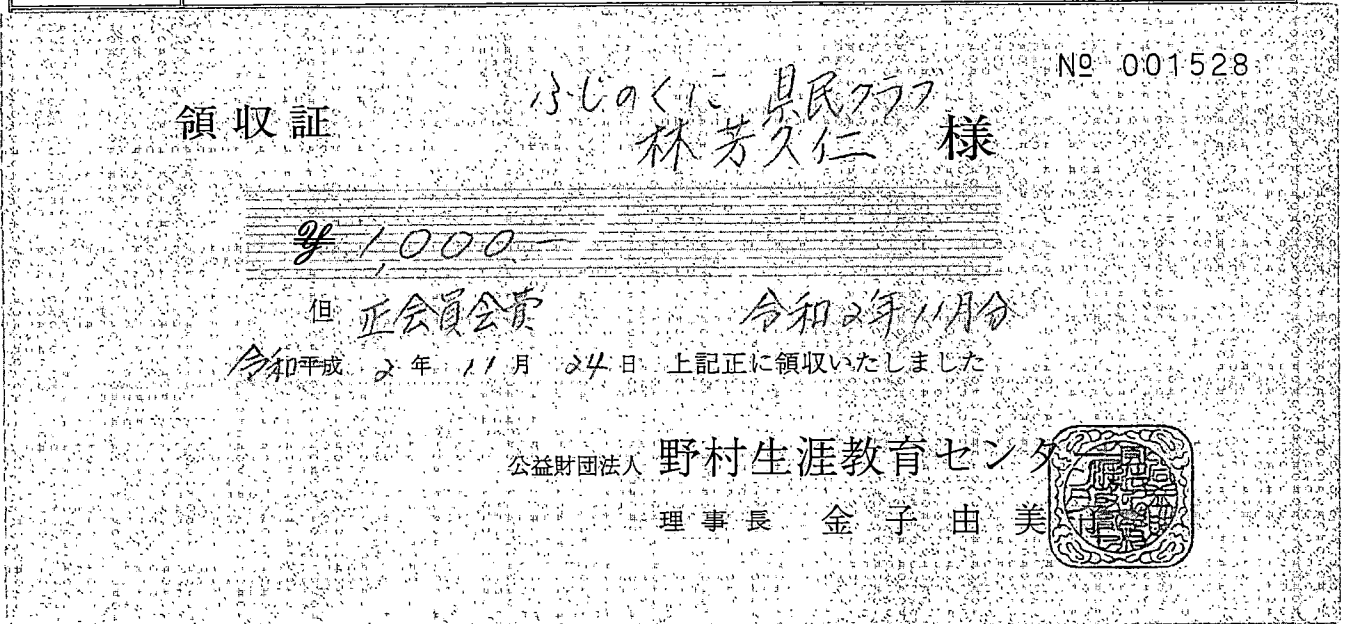 № 001528
ふじのくに 県民クラブ
領収証
林 芳久仁 様
¥ 1,000.-
但 正会員会費 令和2年11月分
令和平成 2年 11月 24日 上記正に領収いたしました
公益財団法人 野村生涯教育センター
理事長 金子由美子